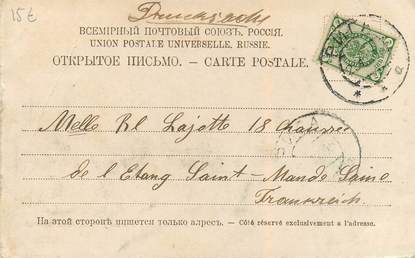 15€
Drucksache
ВСЕМІРНЫЙ ПОЧТОВЫЙ СОЮЗЪ. РОССІЯ.
UNION POSTALE UNIVERSELLE. RUSSIE.
ОТКРЫТОЕ ПИСЬМО. — CARTE POSTALE.
Melle Lajotte 18 Chaussée
de l'Etang Saint-Mande Seine
Frankreich.
На этой сторонѣ пишется только адресъ. — Côté réservé exclusivement a l'adresse.